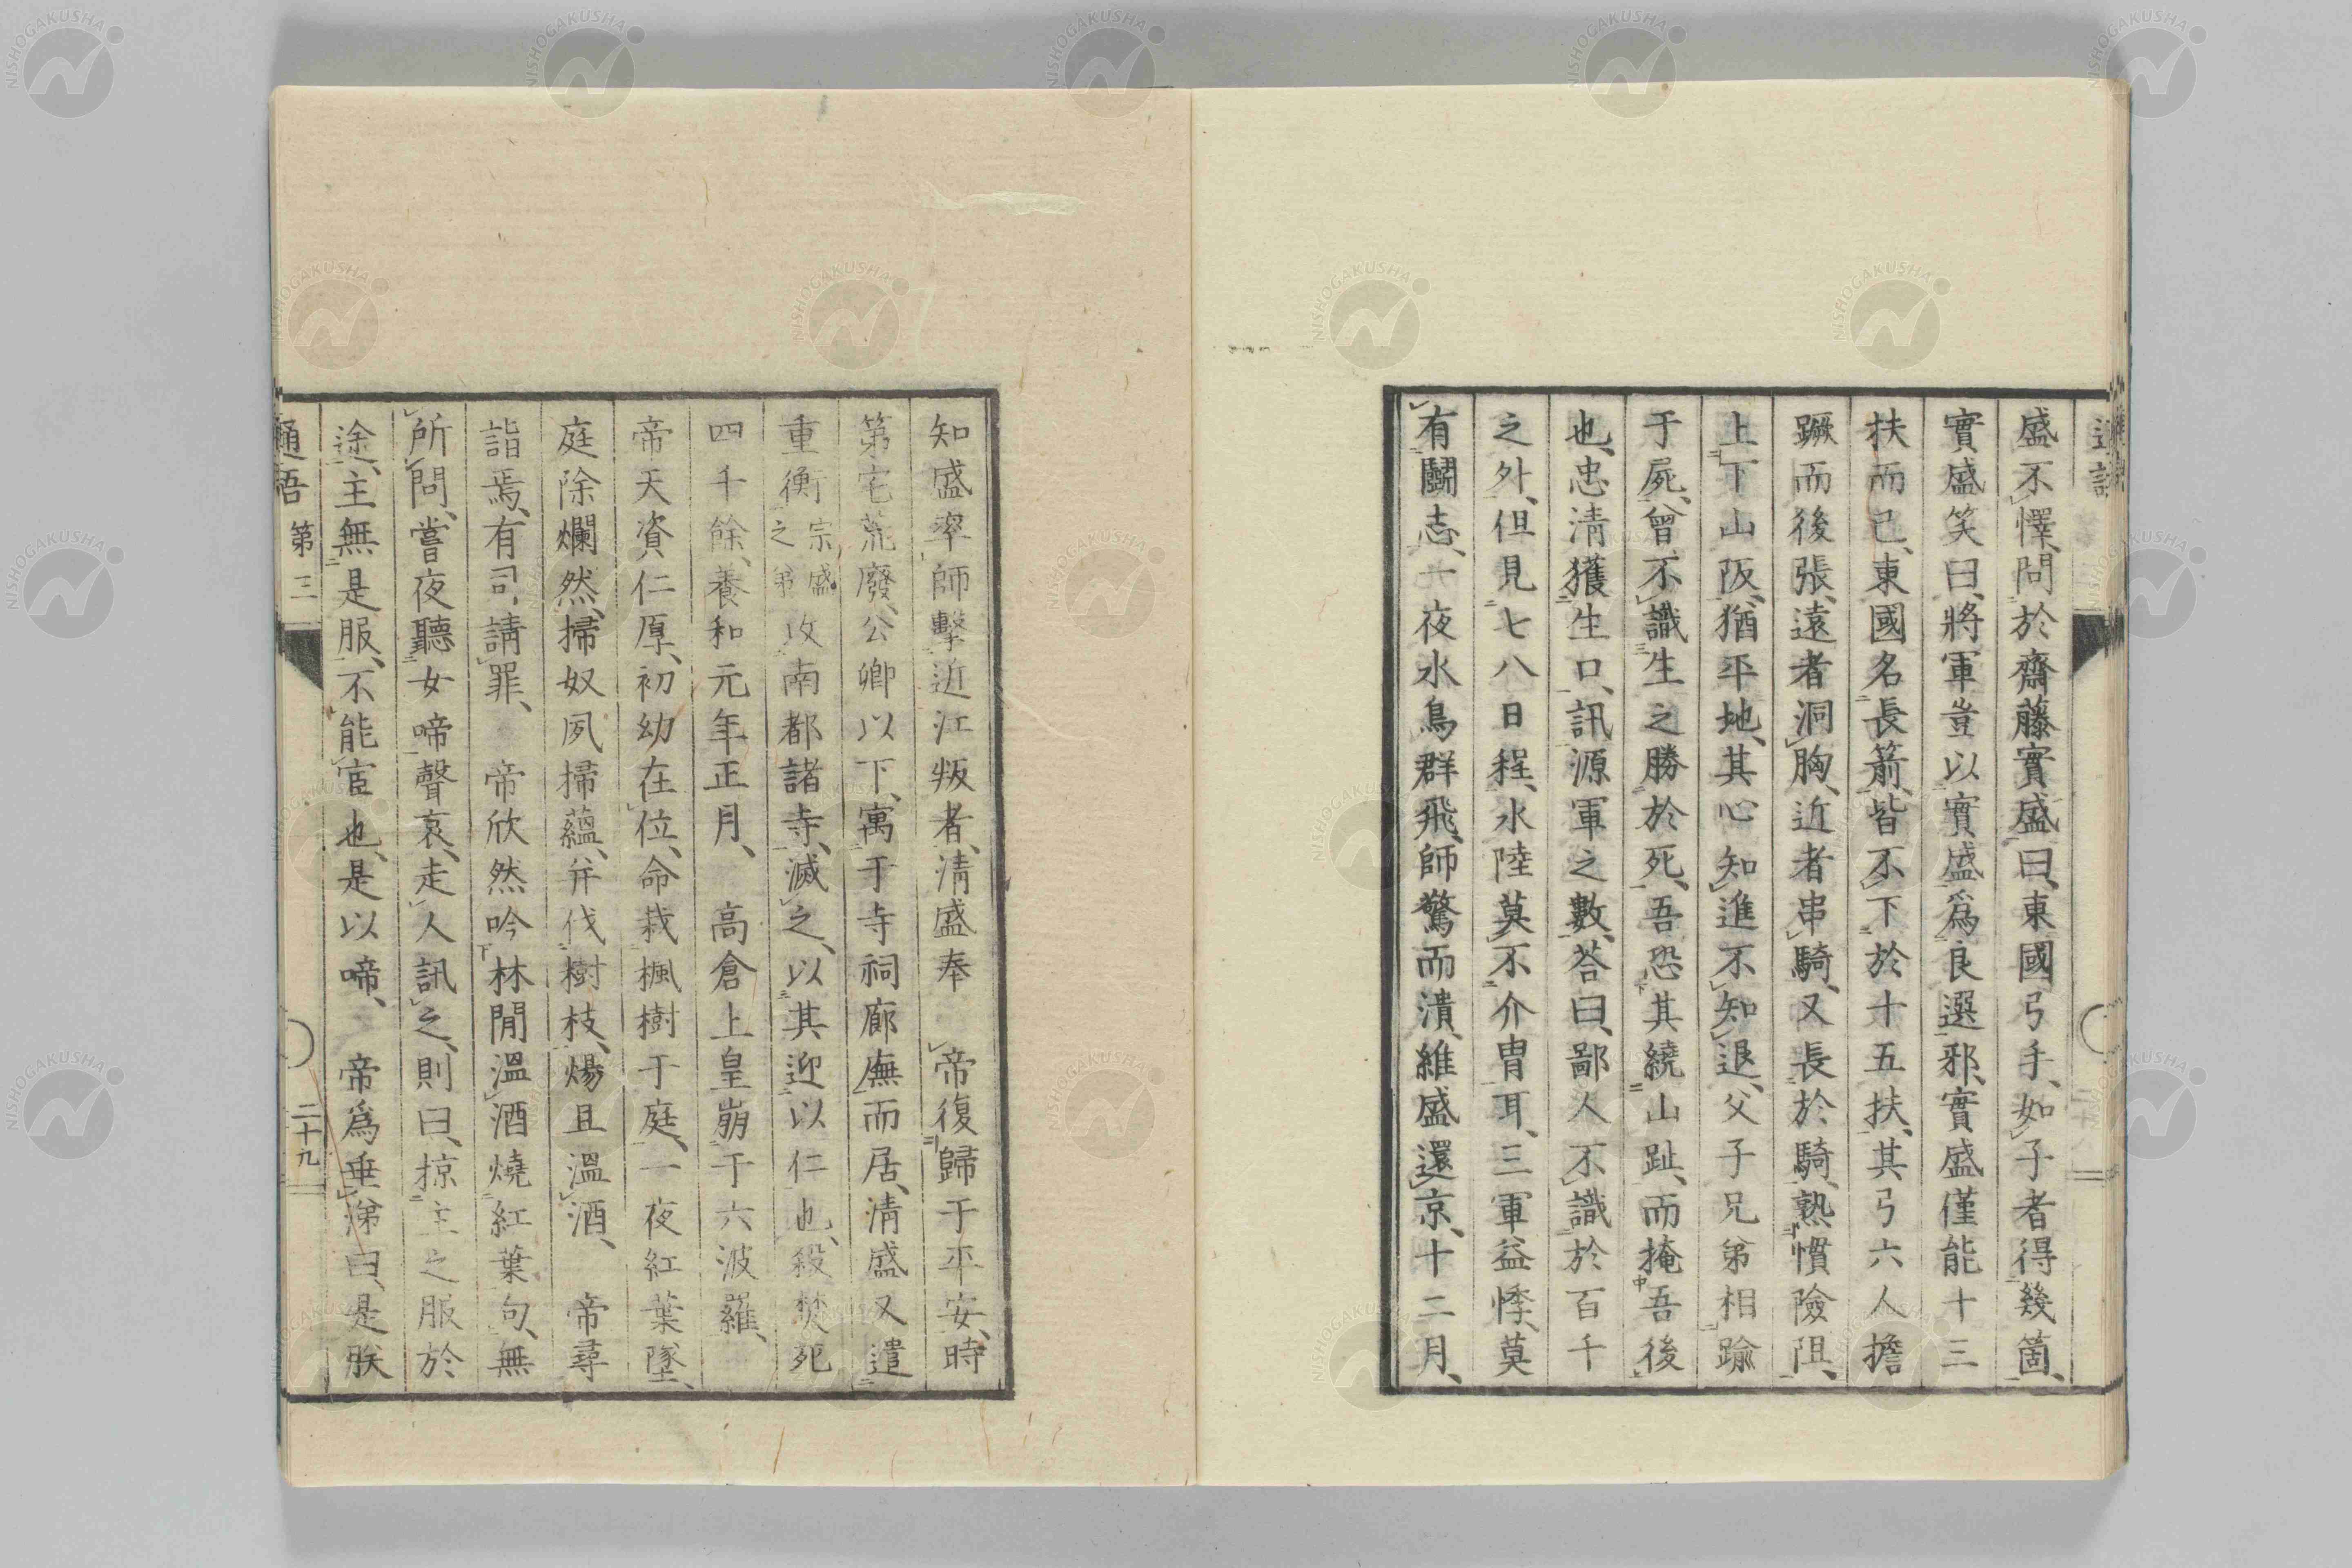 盛不懌、問於齋藤實盛曰、東國弓手、如子者得幾箇、
實盛笑曰、將軍豈以實盛爲良選邪、實盛僅能十三
扶而已、東國名長箭、皆不下於十五扶、其弓六人擔
蹶而後張、遠者洞胸、近者串騎、又長於騎、熟慣險阻、
上下山阪、猶平地、其心知進不知退、父子兄弟相踰
于屍、曾不識生之勝於死、吾恐其繞山趾、而掩吾後
也、忠清獲生口、訊源軍之數、答曰、鄙人不識於百千
之外、但見七八日程、水陸莫不介冑耳、三軍益悸、莫
有鬭志、一夜水鳥群飛、師驚而潰、維盛還京、十二月、
知盛率師擊近江叛者、清盛奉　帝復歸于平安、時
第宅荒廢、公卿以下、寓于寺祠廊廡而居、清盛又遣
重衡宗盛之弟攻南都諸寺、滅之、以其迎以仁也、殺焚死
四千餘、養和元年正月、　高倉上皇崩于六波羅、
帝天資仁厚、初幼在位、命栽楓樹于庭、一夜紅葉墜、
庭除爛然、掃奴夙掃蘊、并伐樹枝、煬且溫酒、　帝尋
詣焉、有司請罪、　帝欣然吟林閒溫酒燒紅葉句、無
所問、嘗夜聽女啼聲哀、走人訊之、則曰、掠主之服於
途、主無是服、不能宦也、是以啼、　帝爲垂涕曰、是朕
通語　第三　二十九